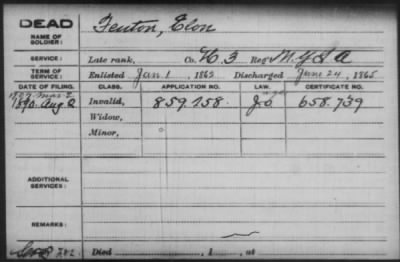 DEAD
NAME OF SOLDIER: Fenton, Elon
SERVICE: Late rank, Co. K. 3 Reg't N.Y.L.A
TERM OF SERVICE: Enlisted Jan 1, 1862 Discharged June 24, 1865
DATE OF FILING. CLASS. APPLICATION NO. LAW. CERTIFICATE NO.
1890. Aug 2 Invalid, 859.758. 658.739
Widow,
Minor,
ADDITIONAL SERVICES:
REMARKS:
Died , 1 , at